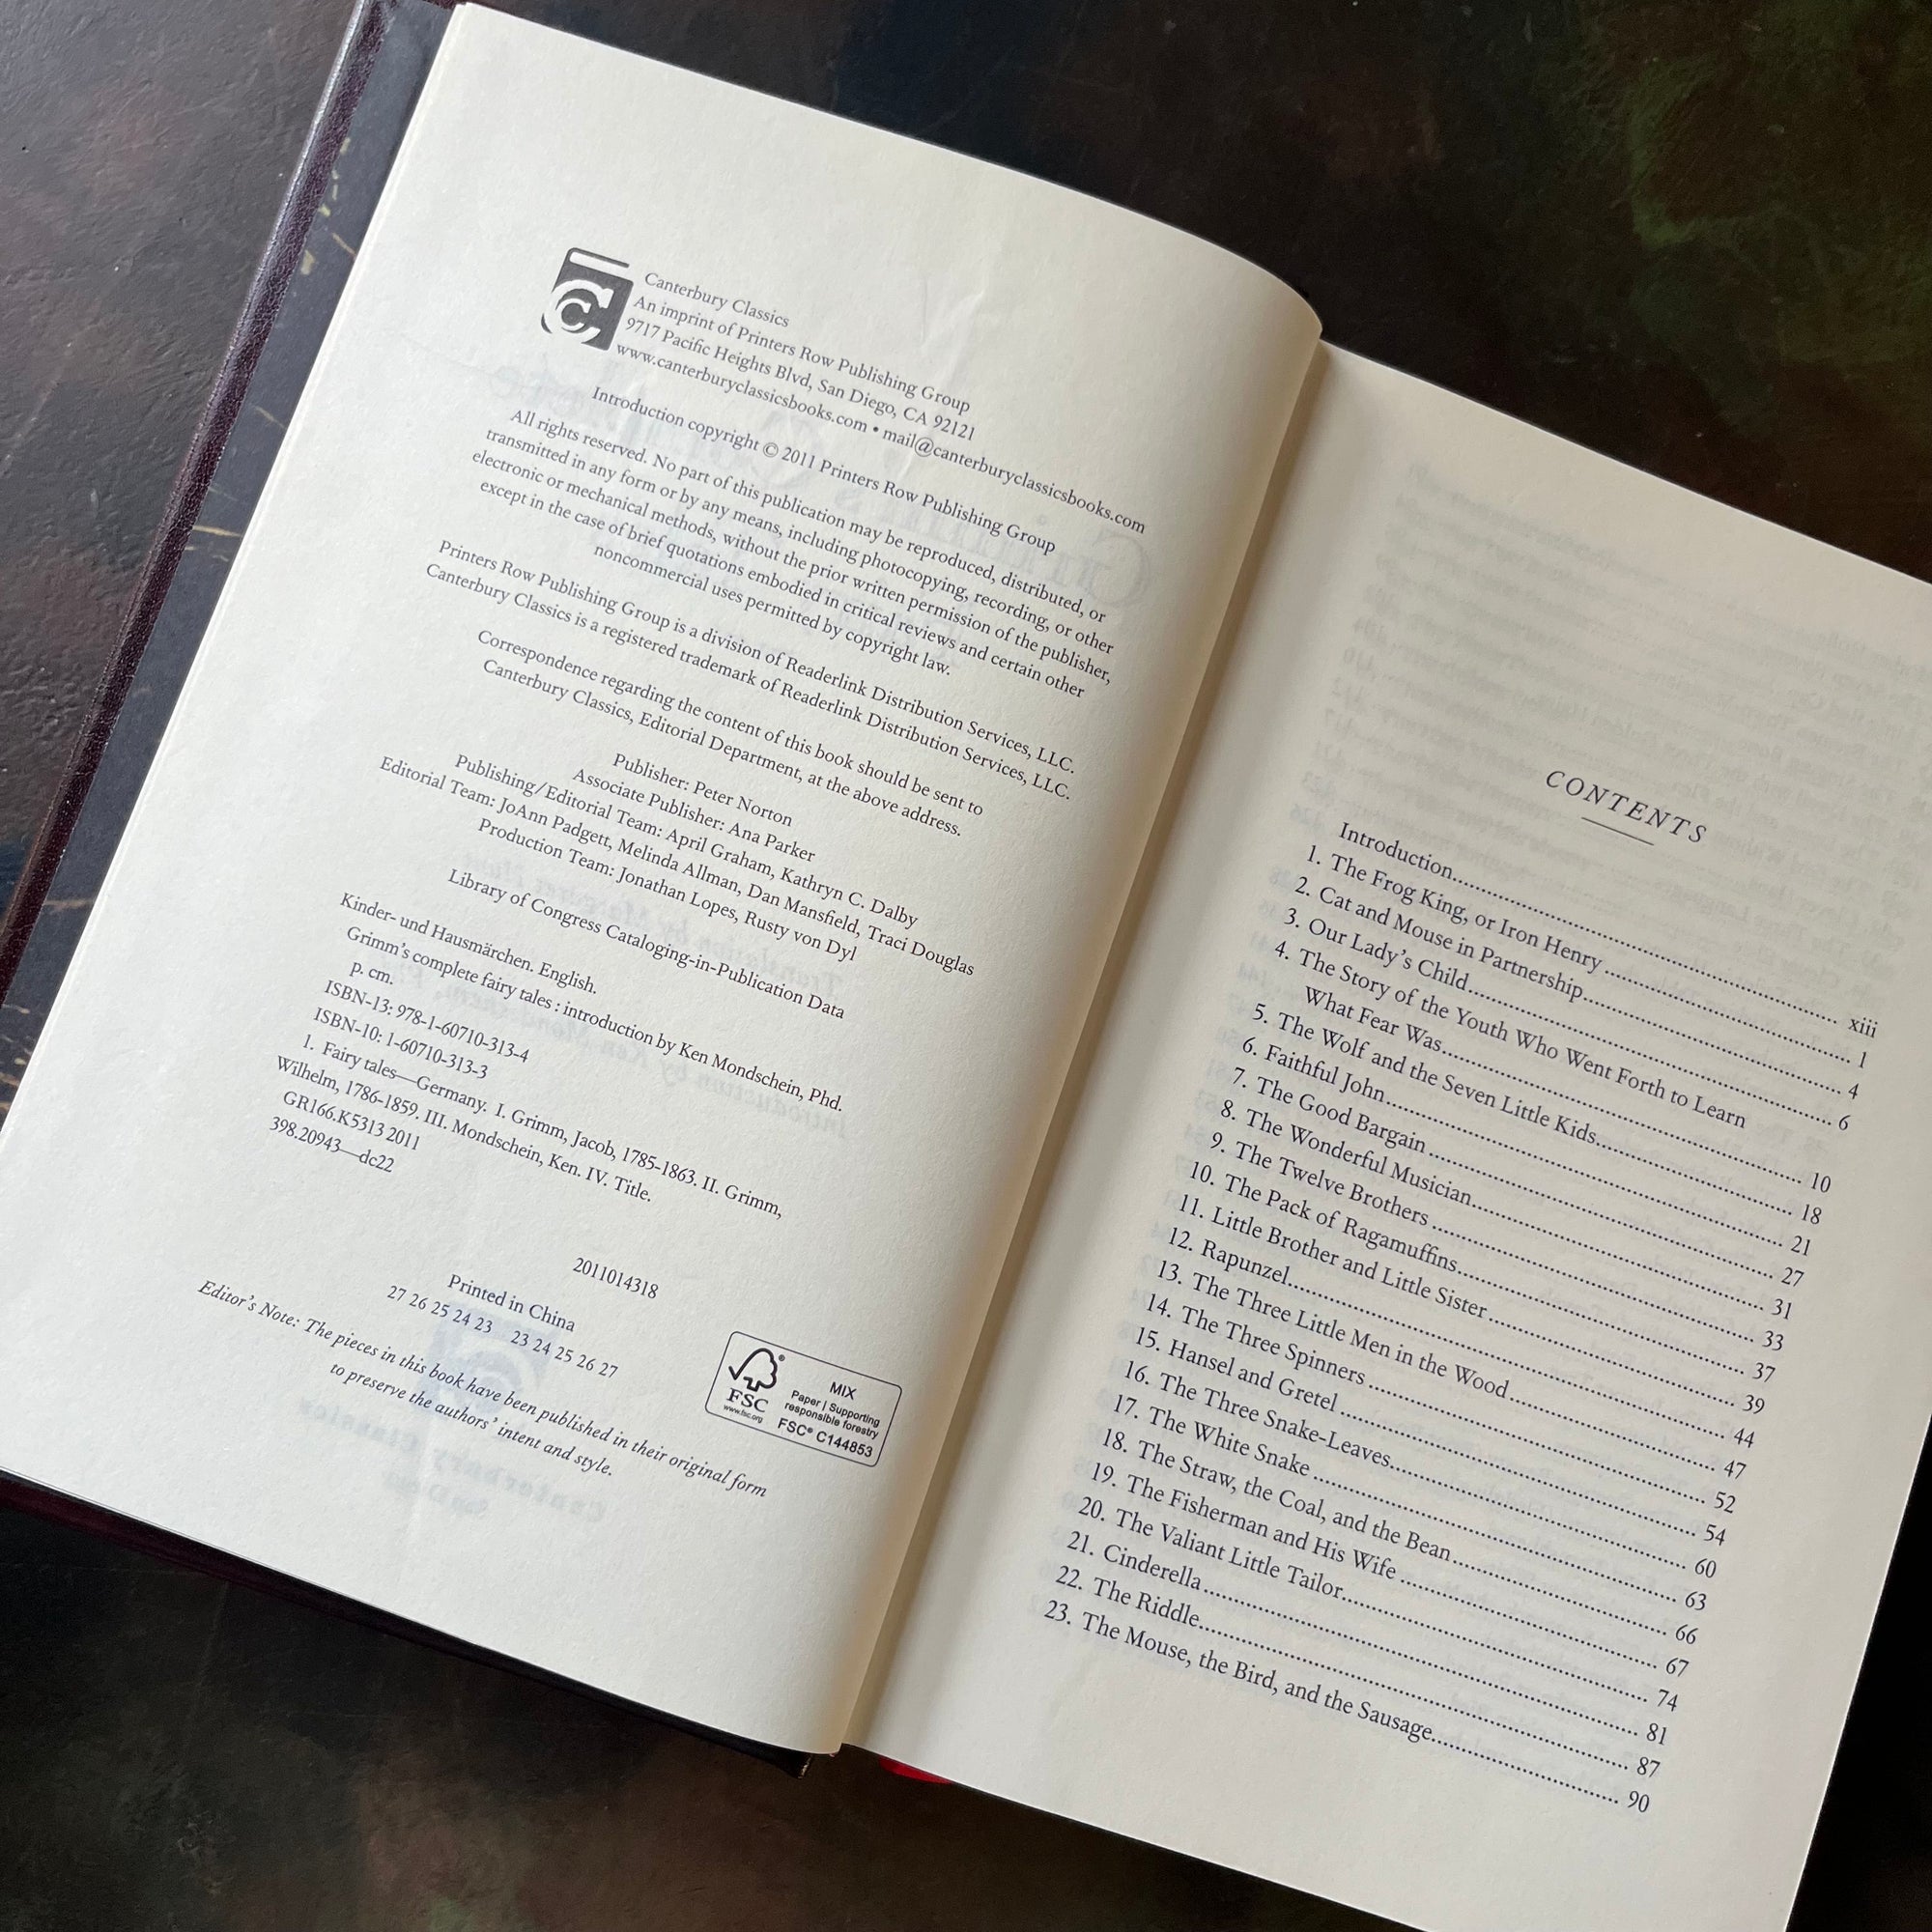 Canterbury Classics
An imprint of Printers Row Publishing Group
9717 Pacific Heights Blvd, San Diego, CA 92121
www.canterburyclassicsbooks.com • mail@canterburyclassicsbooks.com
Introduction copyright © 2011 Printers Row Publishing Group
All rights reserved. No part of this publication may be reproduced, distributed, or
transmitted in any form or by any means, including photocopying, recording, or other
electronic or mechanical methods, without the prior written permission of the publisher,
except in the case of brief quotations embodied in critical reviews and certain other
noncommercial uses permitted by copyright law.
Printers Row Publishing Group is a division of Readerlink Distribution Services, LLC.
Canterbury Classics is a registered trademark of Readerlink Distribution Services, LLC.
Correspondence regarding the content of this book should be sent to
Canterbury Classics, Editorial Department, at the above address.
Publisher: Peter Norton
Associate Publisher: Ana Parker
Publishing/Editorial Team: April Graham, Kathryn C. Dalby
Editorial Team: JoAnn Padgett, Melinda Allman, Dan Mansfield, Traci Douglas
Production Team: Jonathan Lopes, Rusty von Dyl
Library of Congress Cataloging-in-Publication Data
Kinder- und Hausmärchen. English.
Grimm's complete fairy tales : introduction by Ken Mondschein, Phd.
p. cm.
ISBN-13: 978-1-60710-313-4
ISBN-10: 1-60710-313-3
1. Fairy tales—Germany. I. Grimm, Jacob, 1785-1863. II. Grimm,
Wilhelm, 1786-1859. III. Mondschein, Ken. IV. Title.
GR166.K5313 2011
398.20943—dc22
2011014318
Printed in China
27 26 25 24 23 23 24 25 26 27
Editor's Note: The pieces in this book have been published in their original form
to preserve the authors' intent and style.
FSC
www.fsc.org
MIX
Paper | Supporting
responsible forestry
FSC® C144853
CONTENTS
Introduction.......... xiii
1. The Frog King, or Iron Henry.......... 1
2. Cat and Mouse in Partnership.......... 4
3. Our Lady's Child.......... 6
4. The Story of the Youth Who Went Forth to Learn
What Fear Was.......... 10
5. The Wolf and the Seven Little Kids.......... 18
6. Faithful John.......... 21
7. The Good Bargain.......... 27
8. The Wonderful Musician.......... 31
9. The Twelve Brothers.......... 33
10. The Pack of Ragamuffins.......... 37
11. Little Brother and Little Sister.......... 39
12. Rapunzel.......... 44
13. The Three Little Men in the Wood.......... 47
14. The Three Spinners.......... 52
15. Hansel and Gretel.......... 54
16. The Three Snake-Leaves.......... 60
17. The White Snake.......... 63
18. The Straw, the Coal, and the Bean.......... 66
19. The Fisherman and His Wife.......... 67
20. The Valiant Little Tailor.......... 74
21. Cinderella.......... 81
22. The Riddle.......... 87
23. The Mouse, the Bird, and the Sausage.......... 90